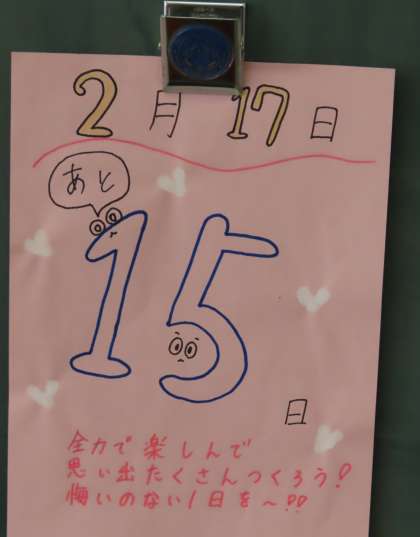 2月17日
あと
15
日
全力で楽しんで
思い出たくさんつくろう!
悔いのない1日を〜!!